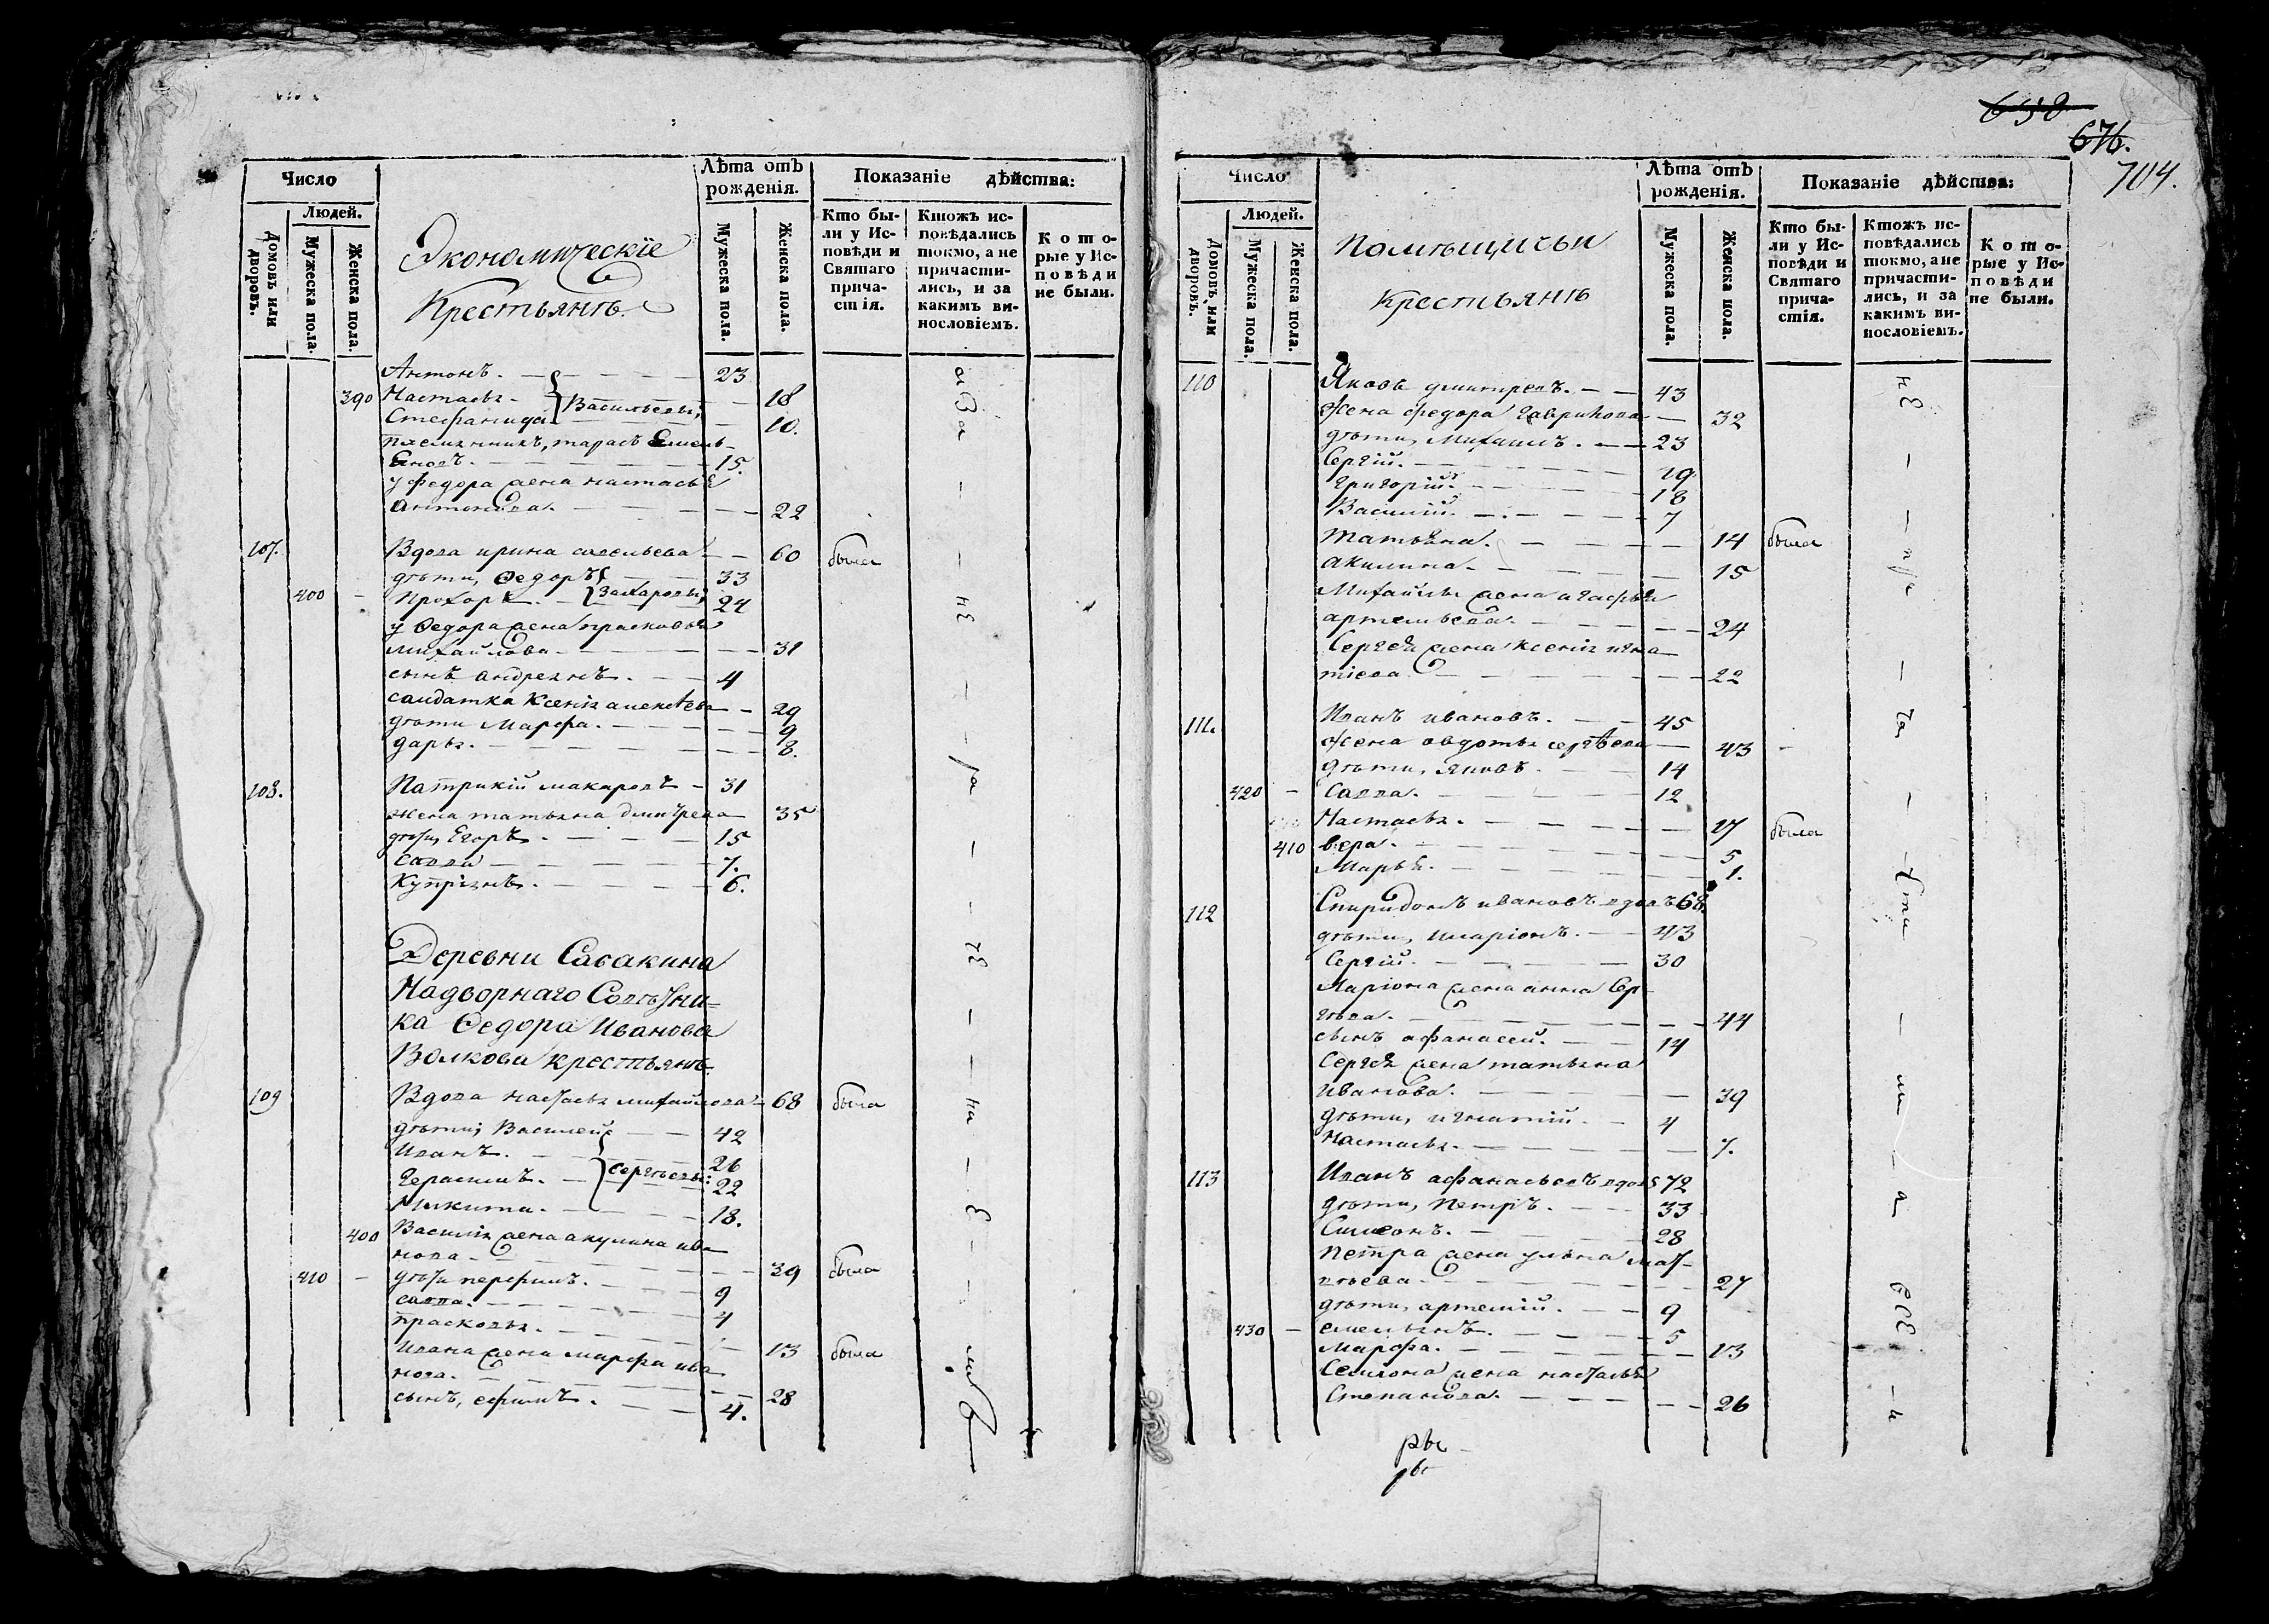 638
676.
704.
Число
Людей.
Домовъ или дворовъ.
Мужеска пола.
Женска пола.
Экономическіе
Крестьянѣ.
Лѣта отъ рожденія.
Мужеска пола.
Женска пола.
Показаніе дѣйства:
Кто были у Исповѣди и Святаго причастія.
Ктожъ исповѣдались токмо, а не причастились, и за какимъ винословіемъ.
Которые у Исповѣди не были.
Антонъ. 23
390 Настасья 18
Стефанида Васильевы 10.
племянникъ, тарасъ Емель-
яновъ. 15.
у Федора жена настасья
антонова. 22
107. Вдова ирина савельева 60 была
дѣти, Ѳедоръ 33
400 Прохоръ. Захаровы 24
у Ѳедора жена прасковья
михайлова 31
сынъ андреянъ. 4
салдатка Ксенія алексѣева 29
дѣти Марфа. 9
дарья. 8.
108. Патрикій макаровъ 31
жена татьяна дмитрева 35
дѣти, Егоръ 15
савва 7.
Купріянъ. 6.
Деревни Сабакина
Надворнаго Совѣтни-
ка Ѳедора Иванова
Волкова крестьянѣ.
109 Вдова настасья михайлова 68 была
дѣти, Василей 42
Иванъ. 26
Герасимъ. Сергѣевы: 22
Микита. 18.
400 Василія жена акулина ива
нова 39 была
410 дѣти перфилъ. 9
савва. 4
прасковья. 13 была
Ивана жена марфа ива
нова. 28
сынъ, ефимъ. 4.
Число
Людей.
Домовъ или дворовъ.
Мужеска пола.
Женска пола.
Помѣщичьи
крестьянѣ
Лѣта отъ рожденія.
Мужеска пола.
Женска пола.
Показаніе дѣйства:
Кто были у Исповѣди и Святаго причастія.
Ктожъ исповѣдались токмо, а не причастились, и за какимъ винословіемъ.
Которые у Исповѣди не были.
110 Яковъ дмитревъ. 43
Жена федора гаврилова 32
дѣти, Михаилъ. 23
Сергій. 19
григорій. 18
Василій. 7
татьяна. 14 была
акилина. 15
Михайлы жена агафья
артемьева. 24
Сергея жена Ксенія игна
тіева 22
111. Иванъ ивановъ. 45
жена авдотья сергѣева 43
дѣти, яковъ. 14
420 Савва. 12
Настасья. 17 была
410 вера. 5
Марья. 1.
112 Спиридонъ ивановъ вдовъ 68.
дѣти, иларіонъ. 43
Сергій. 30
Ларіона жена анна Сер-
гѣева. 44
сынъ афанасей. 14
Сергея жена татьяна
Иванова. 39
дѣти, игнатій. 4
настасья. 7.
113 Иванъ афанасьевъ вдовъ 72
дѣти, Петръ. 33
Симеонъ. 28
Петра жена ульяна мат-
вѣева 27
дѣти, артемій. 9
430 емельянъ. 5
Марфа. 13
Семиона жена настасья
Степанова. 26